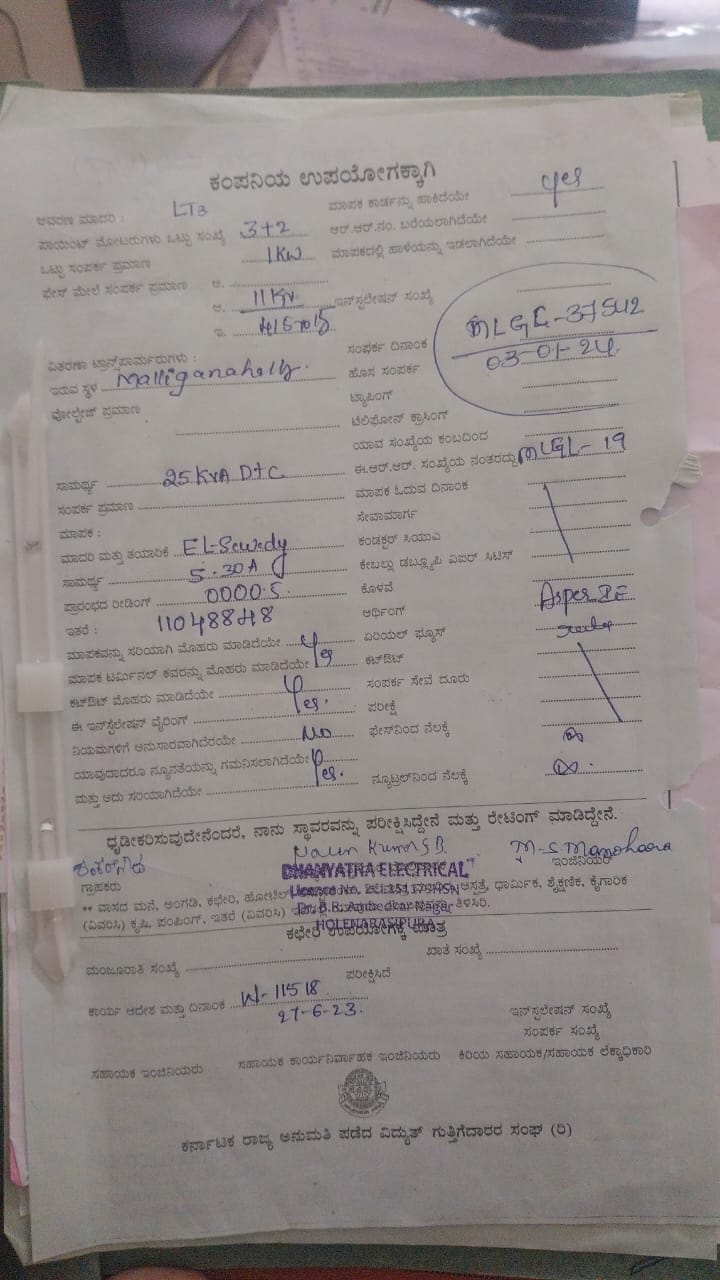 ಕಂಪನಿಯ ಉಪಯೋಗಕ್ಕಾಗಿ
ಆವರಣ ಮಾದರಿ : LT3
ಮಾಪಕ ಕಾರ್ಡನ್ನು ಹಾಕಿದೆಯೇ yes
ಪಾಯಿಂಟ್ ಮೋಟರುಗಳು ಒಟ್ಟು ಸಂಖ್ಯೆ 3+2
ಆರ್.ಆರ್.ನಂ. ಬರೆಯಲಾಗಿದೆಯೇ
ಒಟ್ಟು ಸಂಪರ್ಕ ಪ್ರಮಾಣ 1KW
ಮಾಪಕದಲ್ಲಿ ಹಾಳೆಯನ್ನು ಇಡಲಾಗಿದೆಯೇ
ಫೇಸ್ ಮೇಲೆ ಸಂಪರ್ಕ ಪ್ರಮಾಣ ಅ.
ಆ. 11KV ಇನ್‌ಸ್ಟಲೇಷನ್ ಸಂಖ್ಯೆ
ಇ.
MLGL-37542
03-01-24
ವಿತರಣಾ ಟ್ರಾನ್ಸ್‌ಪಾರ್ಮರುಗಳು :
ಸಂಪರ್ಕ ದಿನಾಂಕ
ಇರುವ ಸ್ಥಳ Malliganahally
ಹೊಸ ಸಂಪರ್ಕ
ವೋಲ್ಟೇಜ್ ಪ್ರಮಾಣ
ಟ್ಯಾಪಿಂಗ್
ಟೆಲಿಫೋನ್ ಕ್ರಾಸಿಂಗ್
ಯಾವ ಸಂಖ್ಯೆಯ ಕಂಬದಿಂದ
ಸಾಮರ್ಥ್ಯ 25KVA DTC
ಈ.ಆರ್.ಆರ್. ಸಂಖ್ಯೆಯ ನಂತರದ್ದು MLGL-19
ಸಂಪರ್ಕ ಪ್ರಮಾಣ
ಮಾಪಕ ಓದುವ ದಿನಾಂಕ
ಮಾಪಕ :
ಸೇವಾಮಾರ್ಗ
ಮಾದರಿ ಮತ್ತು ತಯಾರಿಕೆ EL-Sewedy
ಕಂಡಕ್ಟರ್ ಸಿಯುವಿ
ಸಾಮರ್ಥ್ಯ 5-30A
ಕೇಬಲ್ಲು ಡಬ್ಲ್ಯೂಪಿ ಎಐರ್ ಸಿಟಿಸ್
ಪ್ರಾರಂಭದ ರೀಡಿಂಗ್ 0000.5
ಕೊಳವೆ
ಇತರೆ : 11048848
ಆರ್ಥಿಂಗ್ Asper
ಮಾಪಕವನ್ನು ಸರಿಯಾಗಿ ಮೊಹರು ಮಾಡಿದೆಯೇ Yes
ಏರಿಯಲ್ ಫ್ಯೂಸ್
ಮಾಪಕ ಟರ್ಮಿನಲ್ ಕವರನ್ನು ಮೊಹರು ಮಾಡಿದೆಯೇ
ಕಟ್‌ಔಟ್
ಕಟ್‌ಔಟ್ ಮೊಹರು ಮಾಡಿದೆಯೇ Yes.
ಸಂಪರ್ಕ ಸೇವೆ ದೂರು
ಈ ಇನ್‌ಸ್ಟಲೇಷನ್ ವೈರಿಂಗ್
ಪರೀಕ್ಷೆ
ನಿಯಮಗಳಿಗೆ ಅನುಸಾರವಾಗಿದೆರಯೇ No
ಫೇಸ್‌ನಿಂದ ನೆಲಕ್ಕೆ
ಯಾವುದಾದರೂ ನ್ಯೂನತೆಯನ್ನು ಗಮನಿಸಲಾಗಿದೆಯೇ Yes.
ಮತ್ತು ಅದು ಸರಿಯಾಗಿದೆಯೇ
ನ್ಯೂಟ್ರಲ್‌ನಿಂದ ನೆಲಕ್ಕೆ
ಧೃಡೀಕರಿಸುವುದೇನೆಂದರೆ, ನಾನು ಸ್ಥಾವರವನ್ನು ಪರೀಕ್ಷಿಸಿದ್ದೇನೆ ಮತ್ತು ರೇಟಿಂಗ್ ಮಾಡಿದ್ದೇನೆ.
M-S Manohara
DHANYATHA ELECTRICAL
ಗ್ರಾಹಕರು
ಇಂಜಿನಿಯರ್
Licence No.
** ವಾಸದ ಮನೆ, ಅಂಗಡಿ, ಕಛೇರಿ, ಹೋಟೆಲ್ ಆಸ್ಪತ್ರೆ, ಧಾರ್ಮಿಕ, ಶೈಕ್ಷಣಿಕ, ಕೈಗಾರಿಕ
Dr. B.R. Ambedkar Nagar
(ವಿವರಿಸಿ) ಕೃಷಿ, ಪಂಪಿಂಗ್, ಇತರೆ (ವಿವರಿಸಿ) ತಿಳಿಸಿರಿ.
HOLENARASIPURA
ಕಛೇರಿ ಉಪಯೋಗಕ್ಕೆ ಮಾತ್ರ
ಮಂಜೂರಾತಿ ಸಂಖ್ಯೆ
ಖಾತೆ ಸಂಖ್ಯೆ
ಪರೀಕ್ಷಿಸಿದೆ
ಕಾರ್ಯ ಆದೇಶ ಮತ್ತು ದಿನಾಂಕ W-11518
27-6-23.
ಇನ್‌ಸ್ಟಲೇಷನ್ ಸಂಖ್ಯೆ
ಸಂಪರ್ಕ ಸಂಖ್ಯೆ
ಸಹಾಯಕ ಇಂಜಿನಿಯರು ಸಹಾಯಕ ಕಾರ್ಯನಿರ್ವಾಹಕ ಇಂಜಿನಿಯರು ಕಿರಿಯ ಸಹಾಯಕ/ಸಹಾಯಕ ಲೆಕ್ಕಾಧಿಕಾರಿ
ಕರ್ನಾಟಕ ರಾಜ್ಯ ಅನುಮತಿ ಪಡೆದ ವಿದ್ಯುತ್ ಗುತ್ತಿಗೆದಾರರ ಸಂಘ (ರಿ)